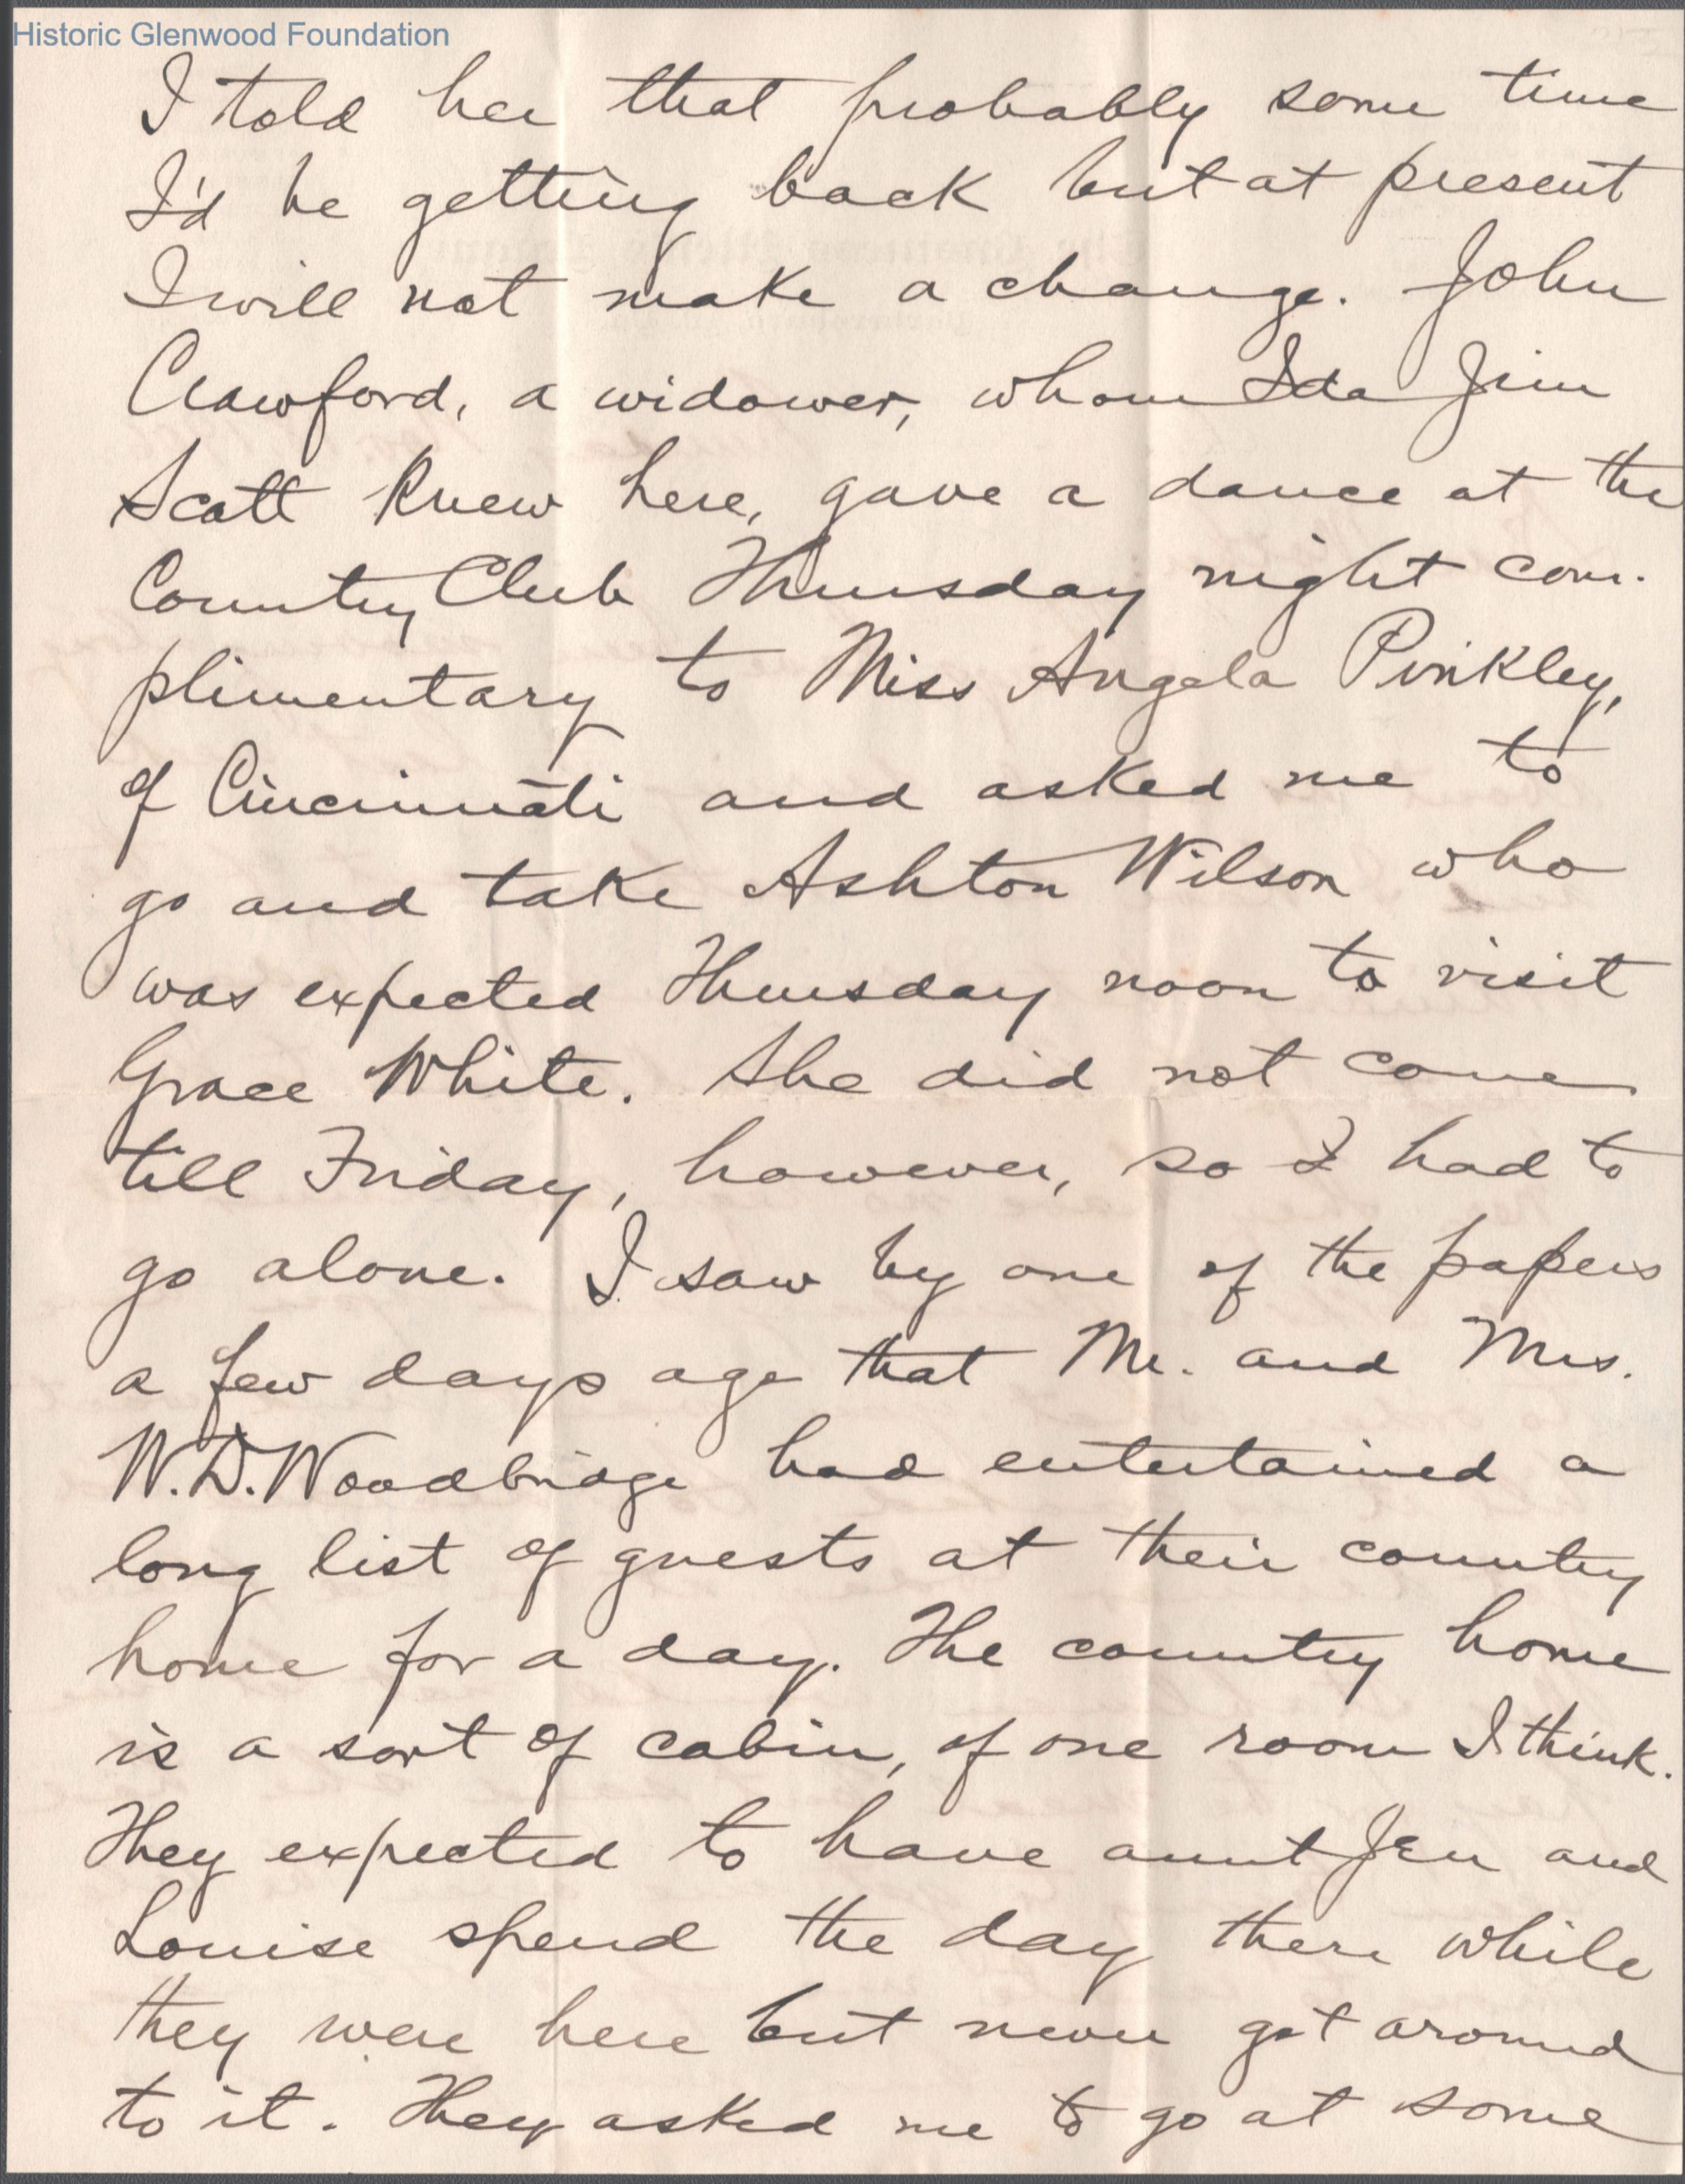 Historic Glenwood Foundation
I told her that probably some time
I'd be getting back but at present
I will not make a change. John
Crawford, a widower, whom Ida Jim
Scott knew here, gave a dance at the
Country Club Thursday night com-
plimentary to Miss Angela Pinkley,
of Cincinnati and asked me to
go and take Ashton Wilson who
was expected Thursday noon to visit
Grace White. She did not come
till Friday, however, so I had to
go alone. I saw by one of the papers
a few days ago that Mr. and Mrs.
W.D. Woodbridge had entertained a
long list of guests at their country
home for a day. The country home
is a sort of cabin, of one room I think.
They expected to have aunt Jen and
Louise spend the day there while
they were here but never got around
to it. They asked me to go at some